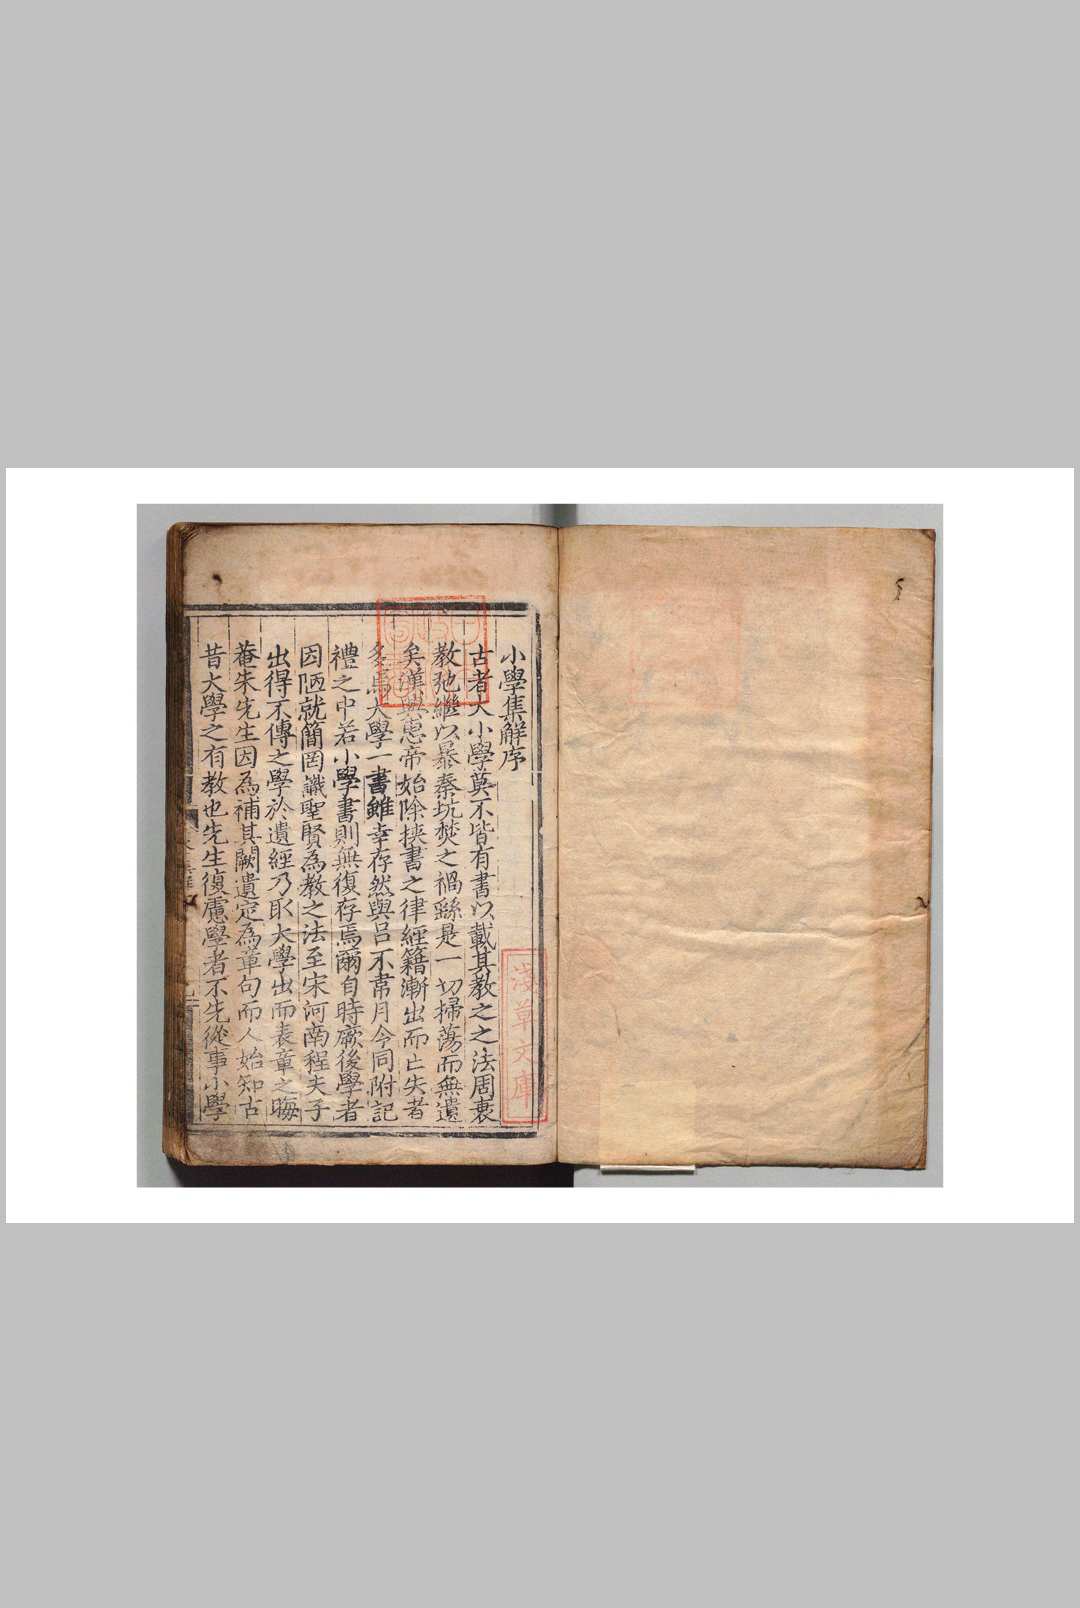 小學集解序
古者大小學莫不皆有書以載其教之之法周衰
教弛繼以暴秦坑焚之禍繇是一切掃蕩而無遺
矣漢興惠帝始除挾書之律經籍漸出而亡失者
多焉大學一書雖幸存然與呂不韋月令同附記
禮之中若小學書則無復存焉爾自時厥後學者
因陋就簡罔識聖賢為教之法至宋河南程夫子
出得不傳之學於遺經乃取大學出而表章之晦
菴朱先生因為補其闕遺定為章句而人始知古
昔大學之有教也先生復慮學者不先從事小學
淺草文庫